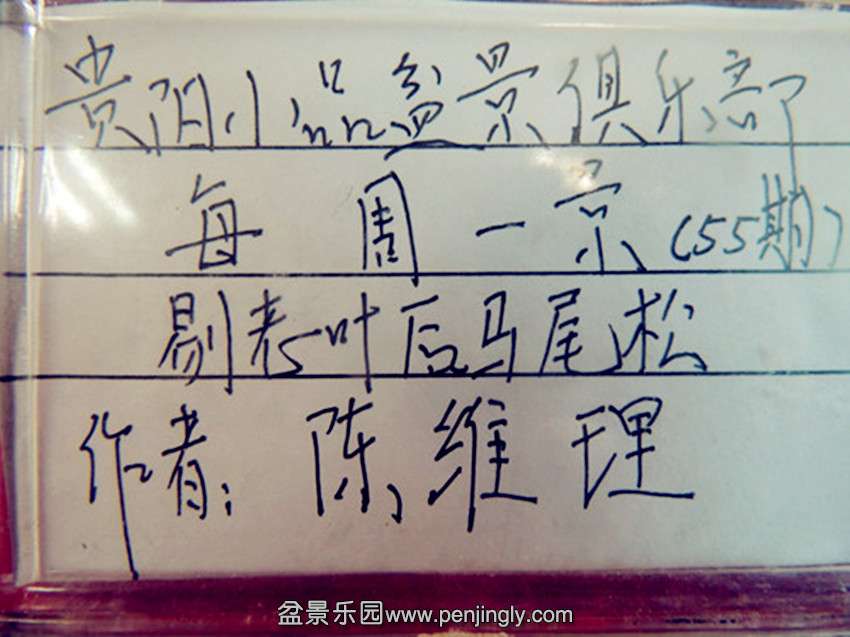 贵阳小品盆景俱乐部
每周一景(55期)
剔老叶后马尾松
作者:陈维理
盆景乐园www.penjingly.com